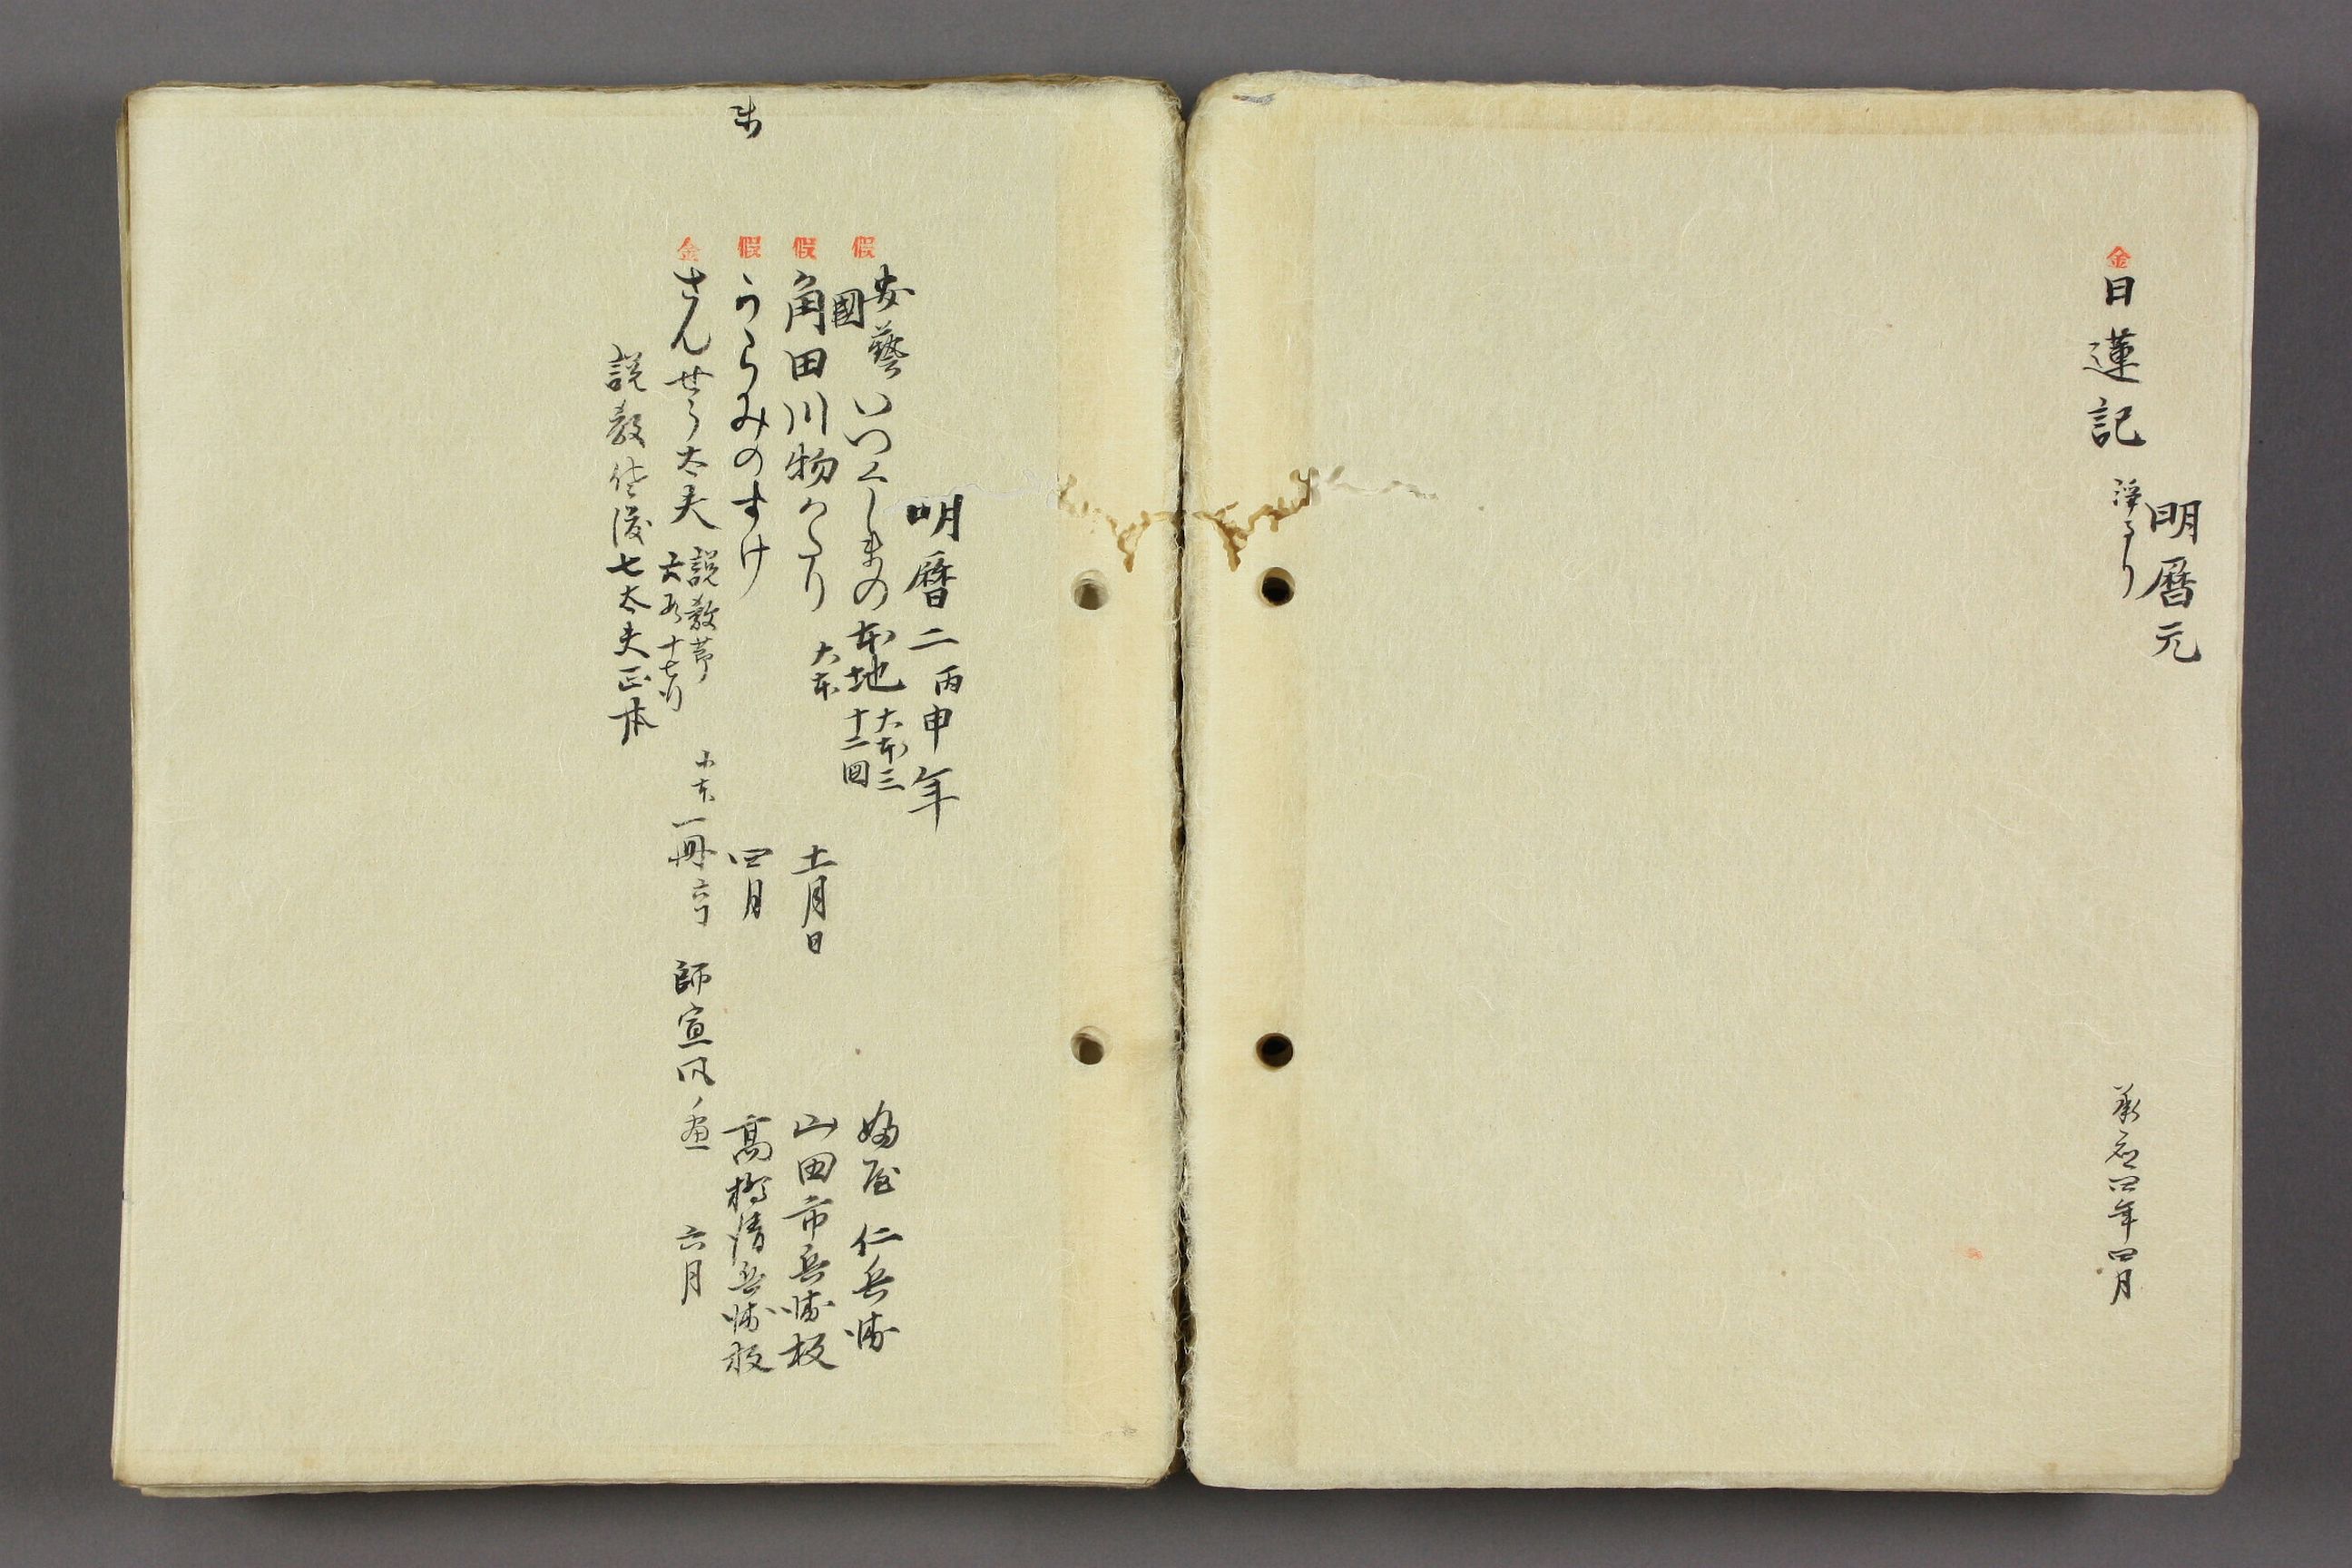 明暦元
金 日蓮記 浄るり 承応四年四月
明暦二丙申年
假 安藝國いつくしまの本地 大本三 十二図 婦屋仁兵衛
假 角田川物かたり 大本 十一月日 山田市兵衛板
假 うらみのすけ 四月 高橋清兵衛板
金 さんせう太夫 説教節 大形十七行 小本一冊 六月
説教佐渡七太夫正本
師宣風ノ画